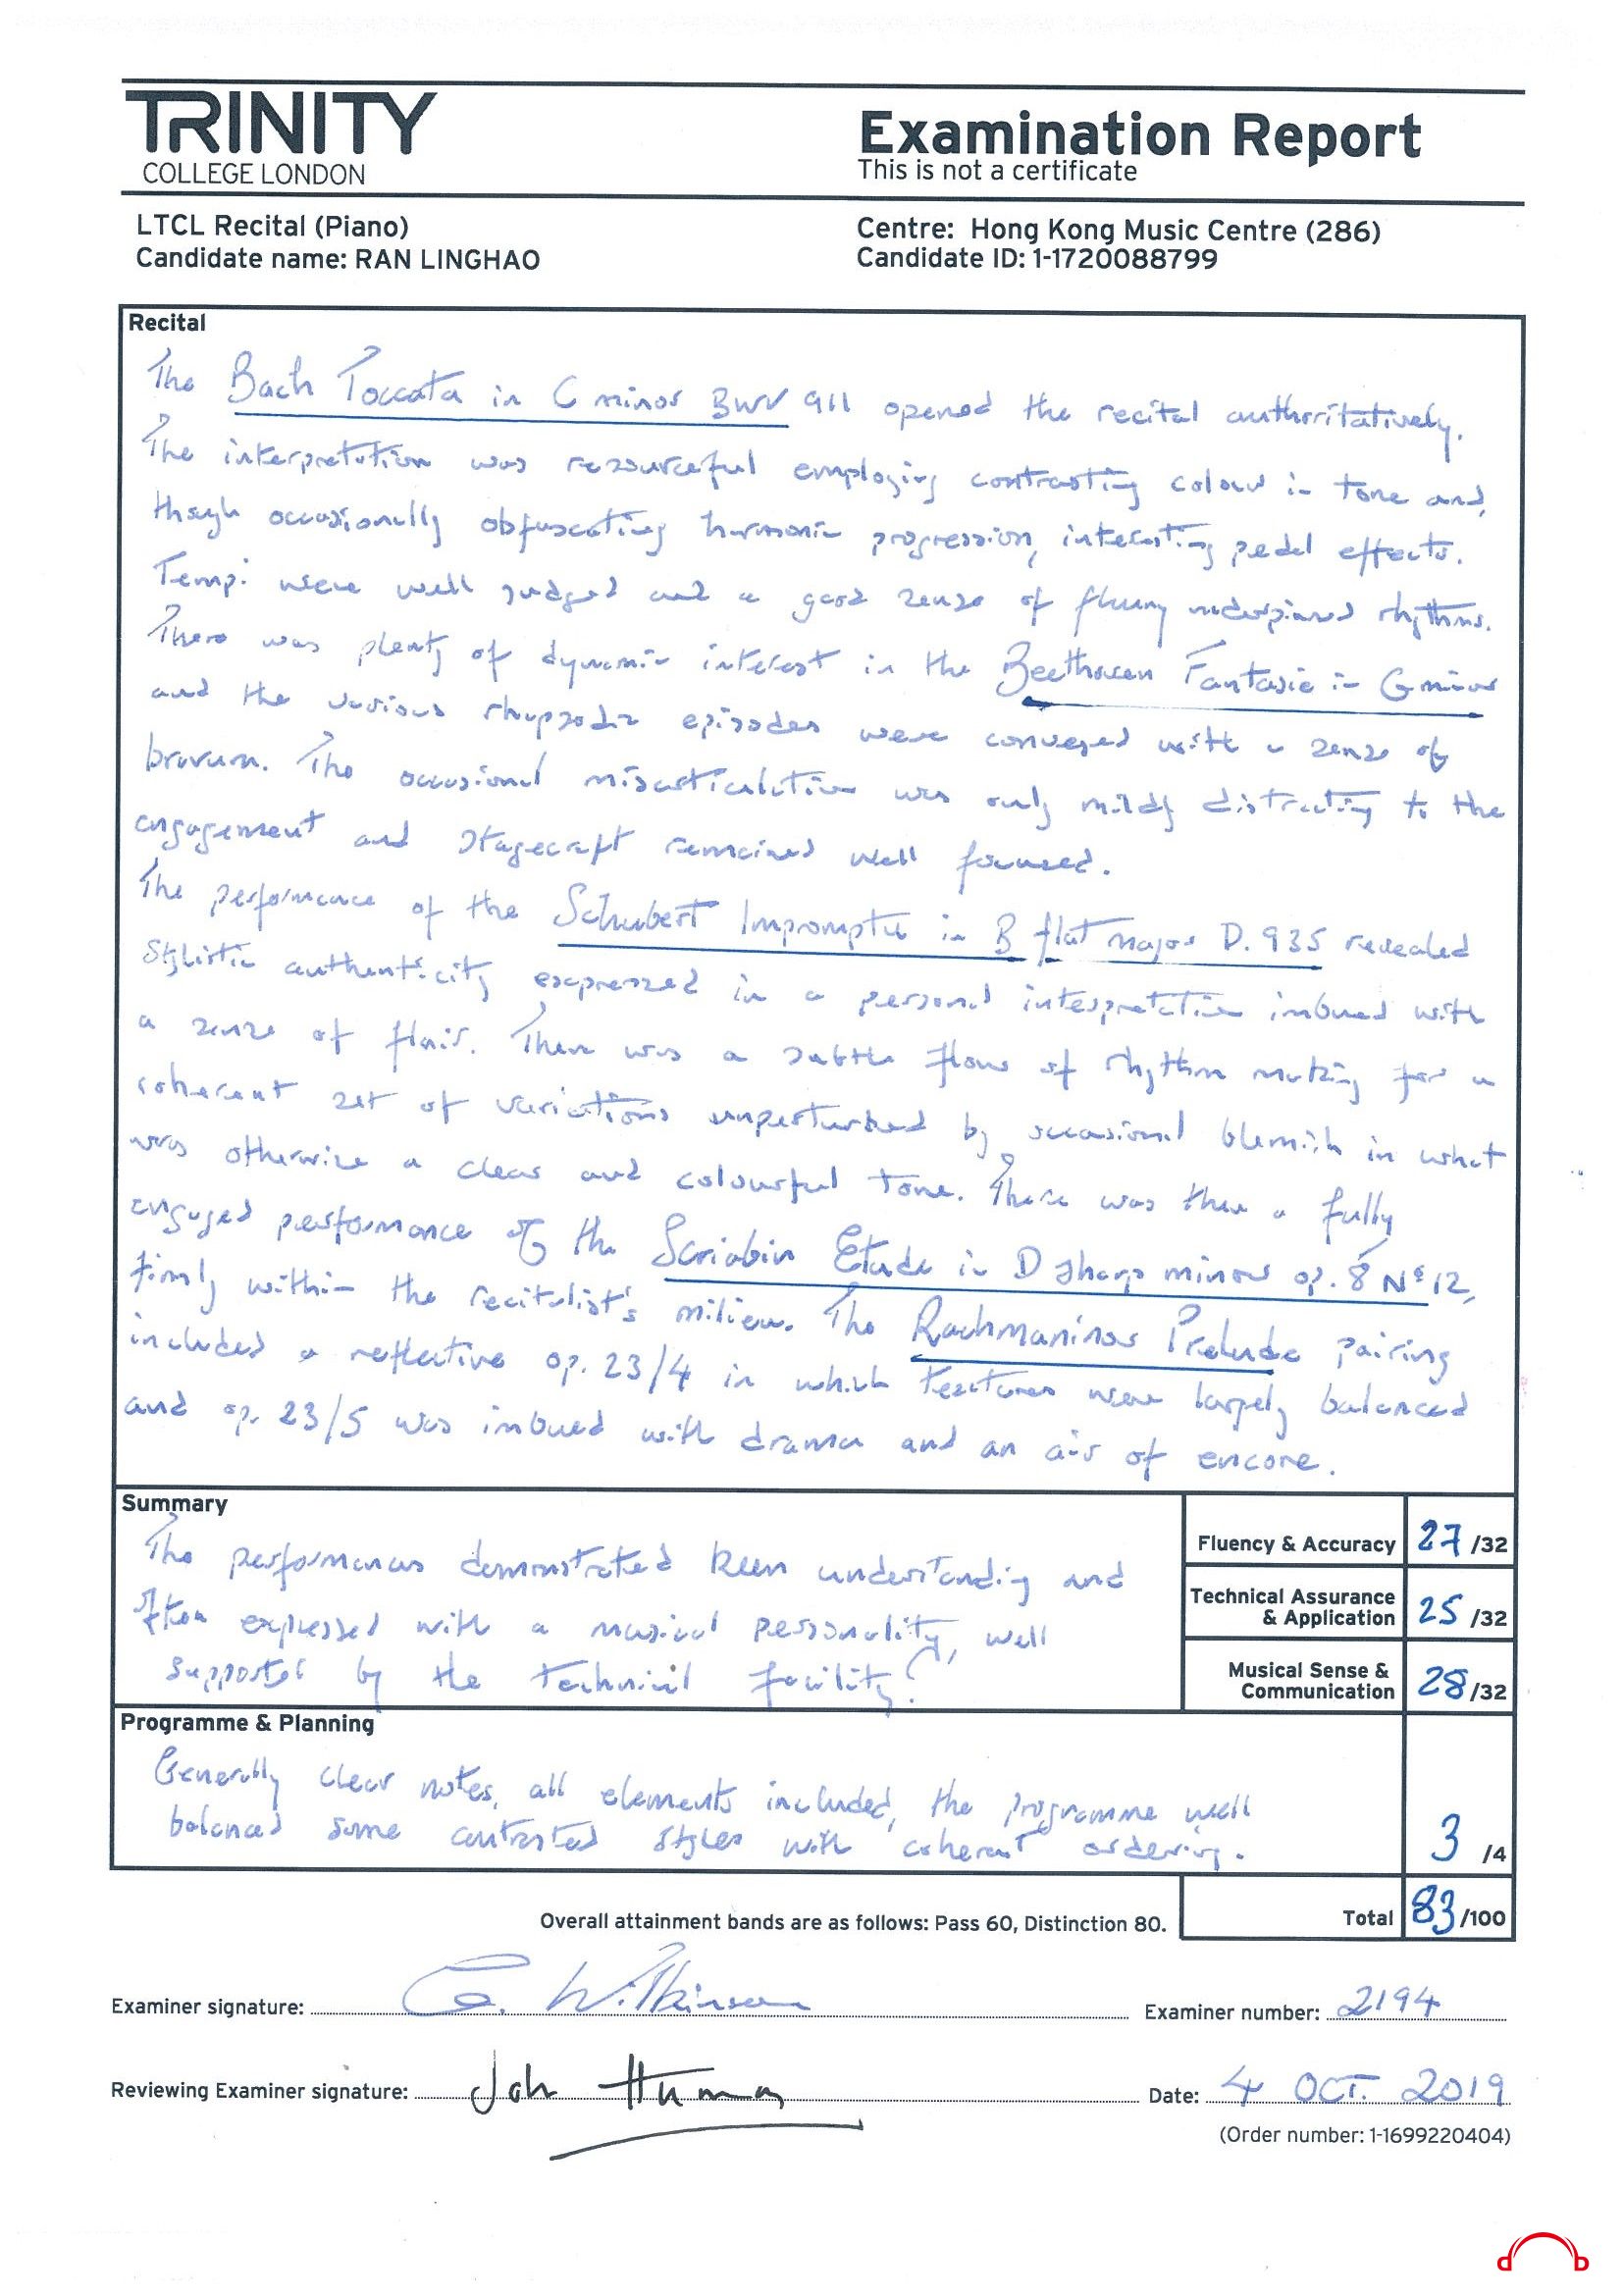 TRINITY
COLLEGE LONDON
Examination Report
This is not a certificate
LTCL Recital (Piano)
Candidate name: RAN LINGHAO
Centre: Hong Kong Music Centre (286)
Candidate ID: 1-1720088799
Recital
The Bach Toccata in C minor BWV 911 opened the recital authoritatively.
The interpretation was resourceful employing contrasting colour in tone and,
though occasionally obfuscating harmonic progression, interesting pedal effects.
Tempi were well judged and a good sense of fluency underpinned rhythms.
There was plenty of dynamic interest in the Beethoven Fantasie in G minor
and the various rhapsodic episodes were conveyed with a sense of
bravura. The occasional misarticulation was only mildly distracting to the
engagement and stagecraft remained well focused.
The performance of the Schubert Impromptu in B flat major D. 935 revealed
stylistic authenticity expressed in a personal interpretation imbued with
a sense of flair. There was a subtle flow of rhythm making for a
coherent set of variations unperturbed by occasional blemish in what
was otherwise a clear and colourful tone. There was then a fully
engaged performance of the Scriabin Etude in D sharp minor op. 8 Nº 12,
firmly within the recitalist's milieu. The Rachmaninov Prelude pairing
included a reflective op. 23/4 in which textures were largely balanced
and op. 23/5 was imbued with drama and an air of encore.
Summary
The performances demonstrated keen understanding and
often expressed with a musical personality, well
supported by the technical facility.
Fluency & Accuracy 27 /32
Technical Assurance
& Application 25 /32
Musical Sense &
Communication 28 /32
Programme & Planning
Generally clear notes, all elements included, the programme well
balanced some contrasted styles with coherent ordering.
3 /4
Overall attainment bands are as follows: Pass 60, Distinction 80.
Total 83 /100
Examiner signature: G. Wilkinson
Examiner number: 2194
Reviewing Examiner signature: Joh
Date: 4 OCT. 2019
(Order number: 1-1699220404)